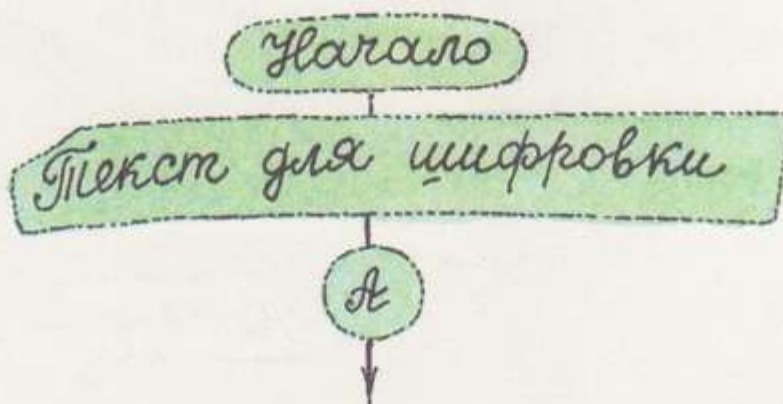 Начало
Текст для шифровки
А